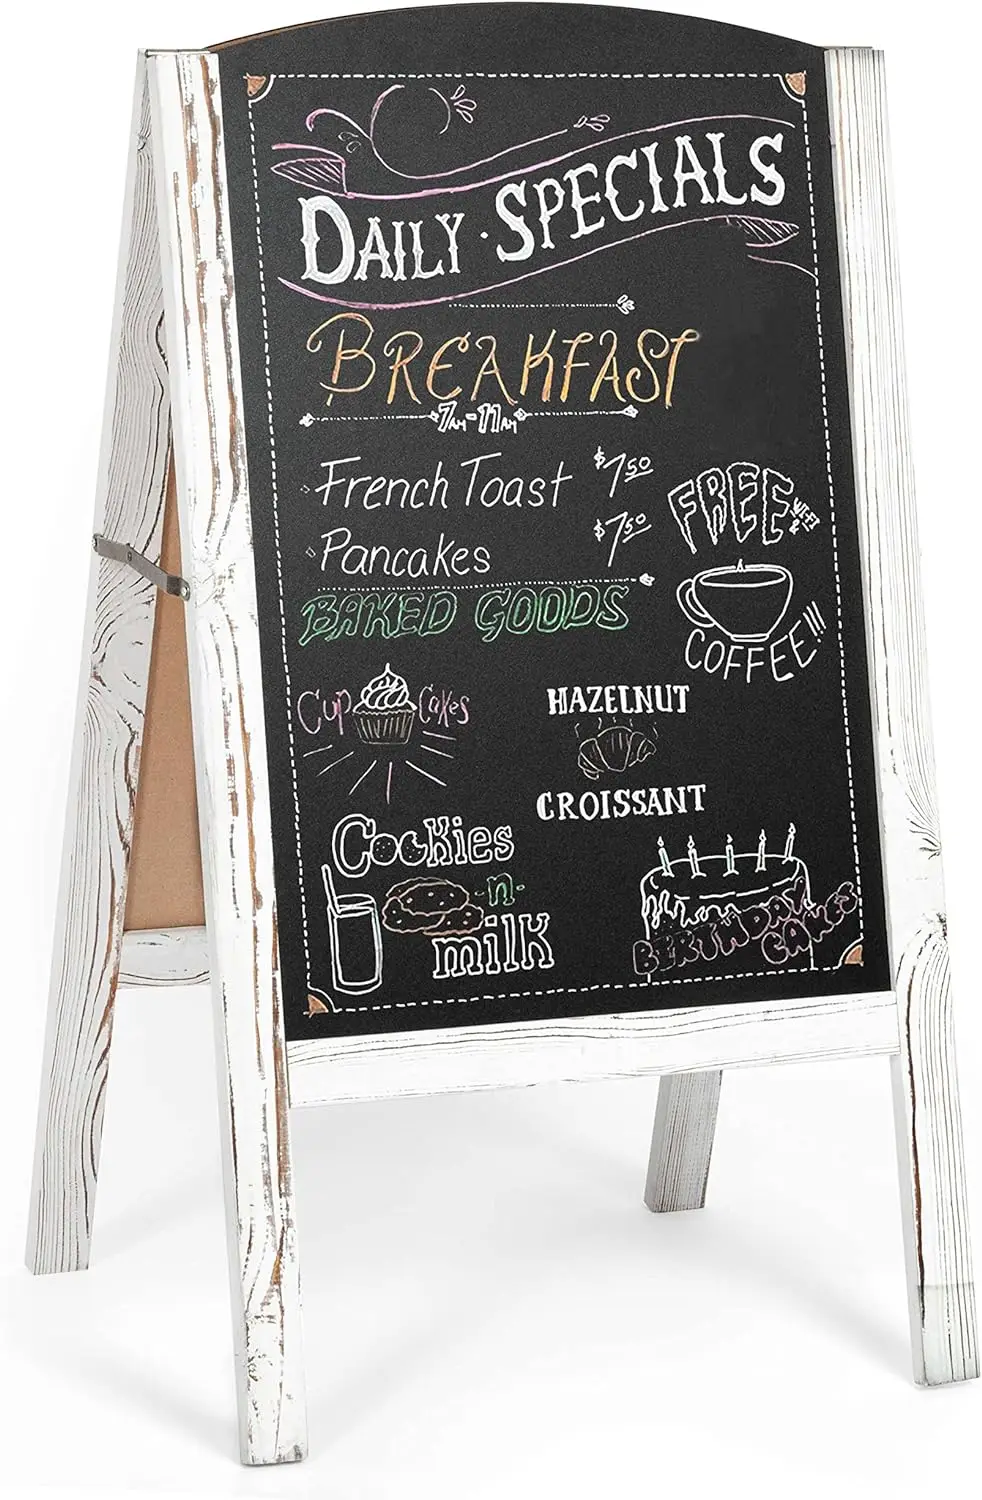 DAILY · SPECIALS
BREAKFAST
7AM-11AM
French Toast $7.50
Pancakes $7.50
FREE
COFFEE!!!
BAKED GOODS
Cup Cakes
HAZELNUT
CROISSANT
Cookies
-n-
milk
BERTHDAY
CAKES